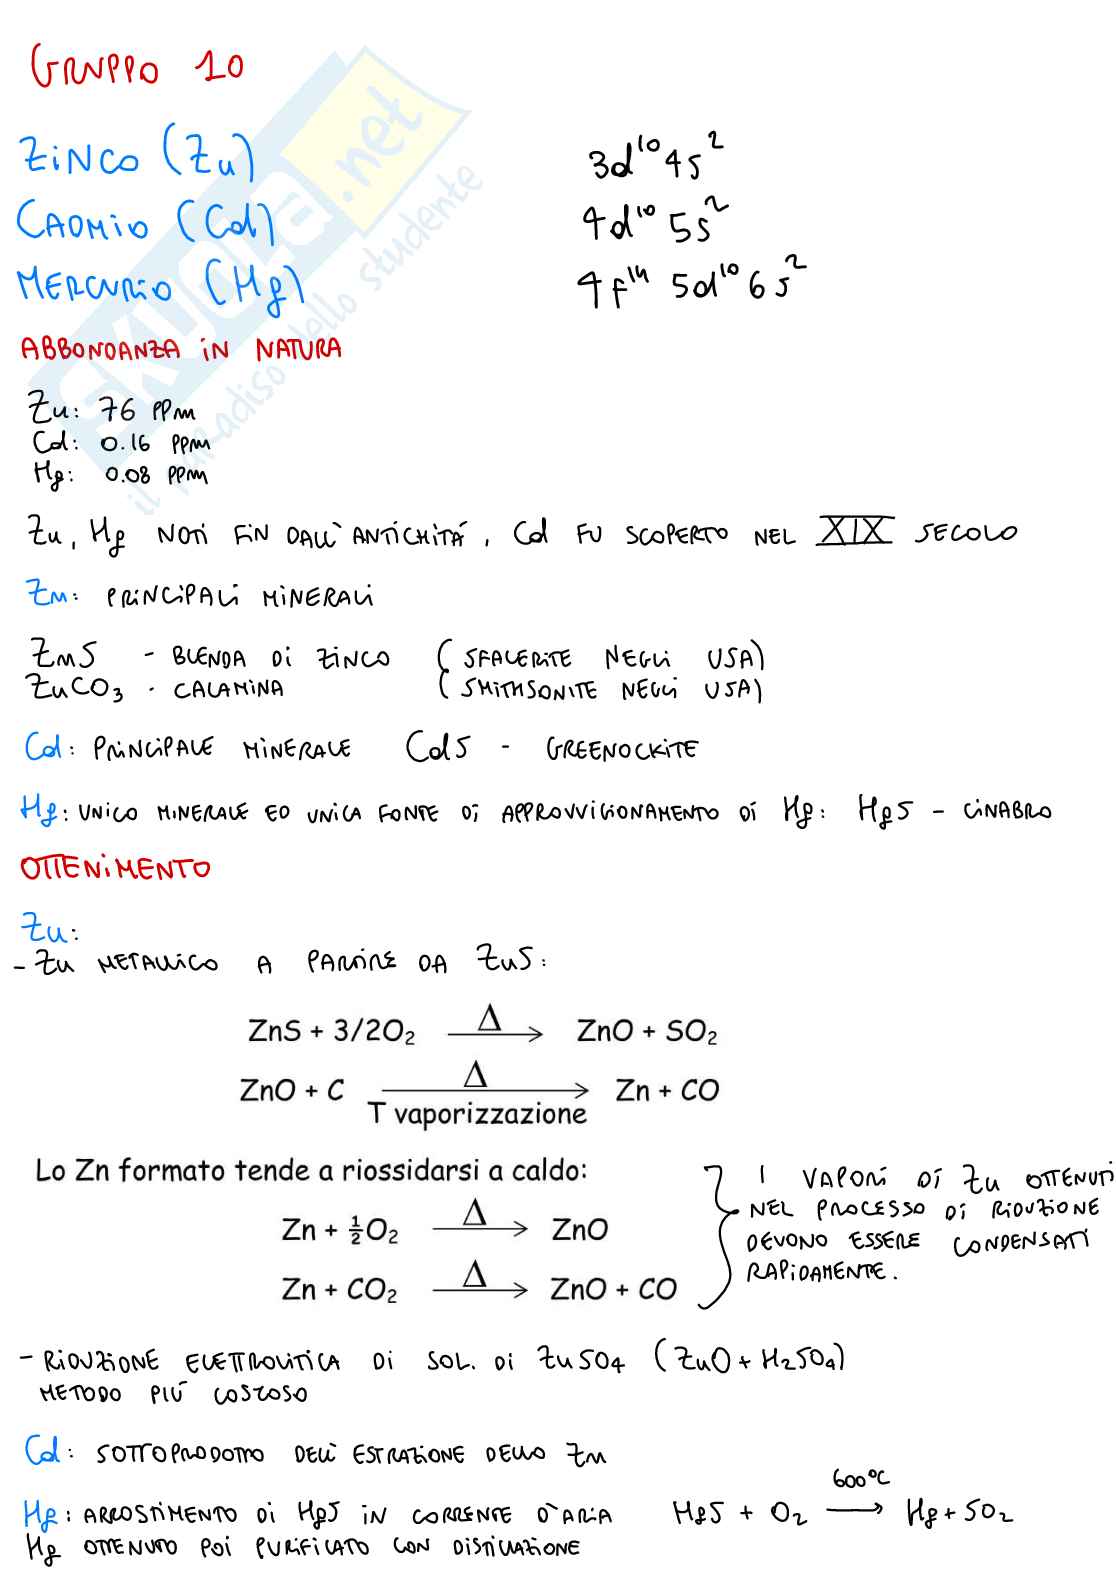 GRUPPO 10
ZINCO (Zn) 3d¹⁰ 4s²
CADMIO (Cd) 4d¹⁰ 5s²
MERCURIO (Hg) 4f¹⁴ 5d¹⁰ 6s²
ABBONDANZA IN NATURA
Zn: 76 PPM
Cd: 0.16 PPM
Hg: 0.08 PPM
Zn, Hg NOTI FIN DALL'ANTICHITÁ, Cd FU SCOPERTO NEL XIX SECOLO
Zn: PRINCIPALI MINERALI
ZnS - BLENDA DI ZINCO (SFALERITE NEGLI USA)
ZnCO₃ - CALAMINA (SMITHSONITE NEGLI USA)
Cd: PRINCIPALE MINERALE CdS - GREENOCKITE
Hg: UNICO MINERALE ED UNICA FONTE DI APPROVVIGIONAMENTO DI Hg: HgS - CINABRO
OTTENIMENTO
Zn:
- Zn METALLICO A PARTIRE DA ZnS:
ZnS + 3/2O₂ Δ→ ZnO + SO₂
ZnO + C Δ→ Zn + CO
T vaporizzazione
Lo Zn formato tende a riossidarsi a caldo:
Zn + ½O₂ Δ→ ZnO
Zn + CO₂ Δ→ ZnO + CO
I VAPORI DI Zn OTTENUTI
NEL PROCESSO DI RIDUZIONE
DEVONO ESSERE CONDENSATI
RAPIDAMENTE.
- RIDUZIONE ELETTROLITICA DI SOL. DI ZnSO₄ (ZnO + H₂SO₄)
METODO PIÚ COSTOSO
Cd: SOTTOPRODOTTO DELL'ESTRAZIONE DELLO Zn
Hg: ARROSTIMENTO DI HgS IN CORRENTE D'ARIA HgS + O₂ 600°C→ Hg + SO₂
Hg OTTENUTO POI PURIFICATO CON DISTILLAZIONE
SKUOLA.net
il paradiso dello studente